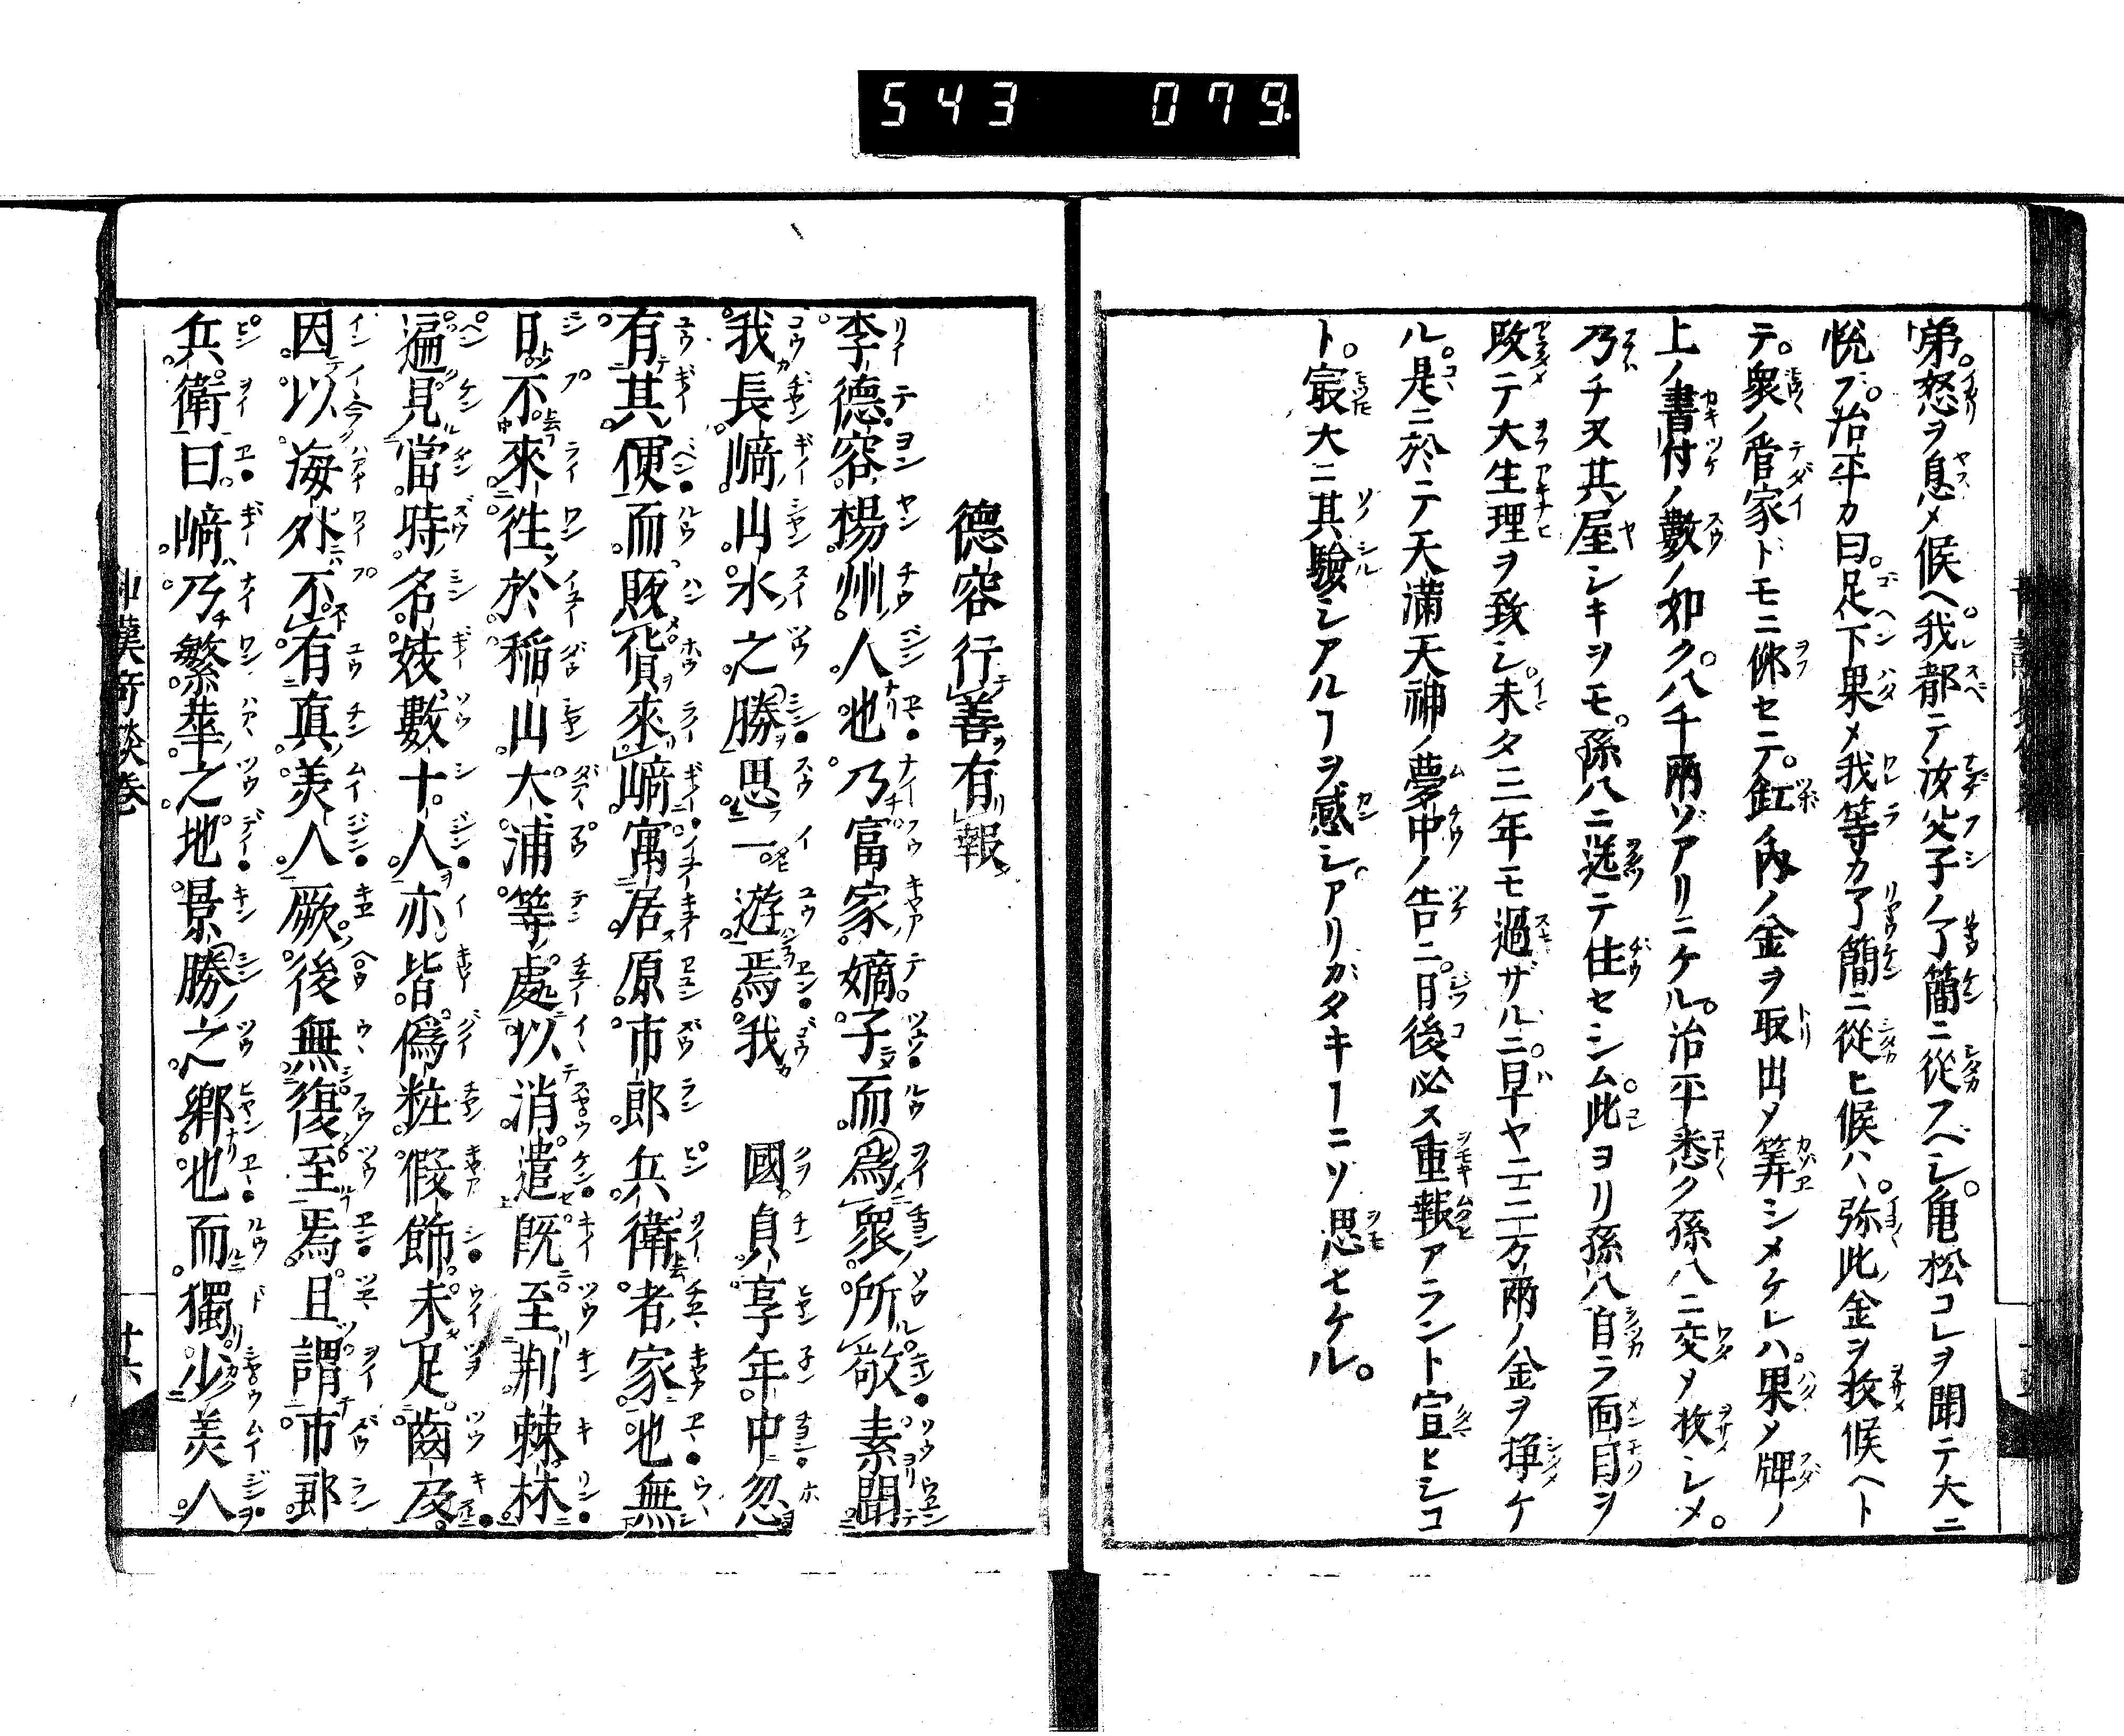 543 079
弟。怒ヲ息メ候ヘ我都テ汝父子ノ了簡ニ從フベシ。亀松コレヲ聞テ大ニ
悦フ。治平カ曰。足下果メ我等カ了簡ニ從ヒ候ハヽ。弥此金ヲ收候ヘト
テ。衆ノ管家ドモニ吩セテ。缸ノ内ノ金ヲ取出メ筭シメケレハ。果メ牌ノ
上ノ書付ノ數ノ如ク。八千兩ゾアリニケル。治平悉ク孫八ニ交メ收シメ。
乃チ又其屋シキヲモ。孫八ニ送テ住セシム。此ヨリ孫八自ラ面目ヲ
改テ大生理ヲ致シ。未タ三年モ過ザルニ。早ヤ二三万兩ノ金ヲ掙ケ
ル。是ニ於テ天滿天神ノ夢中ノ告ニ。日後必ス重報アラント宣ヒシコ
ト。寂大ニ其驗シアルヿヲ感シ。アリガタキヿニソ思ヒケル。
德容行善有報
李德容。楊州人也。乃富家嫡子而爲衆所敬素聞
我長崎山水之勝思一遊焉。我 國貞享年中忽
有其便而販貨來崎寓居原市郎兵衛者家也無
日不來徃於稲山大浦等處以消遣既至荆棘林
遍見當時名妓數十人亦皆僞粧假飾未足齒及
因以海外不有真美人厥後無復至焉且謂市郎
兵衛曰崎乃繁華之地景勝之郷也而獨少美人